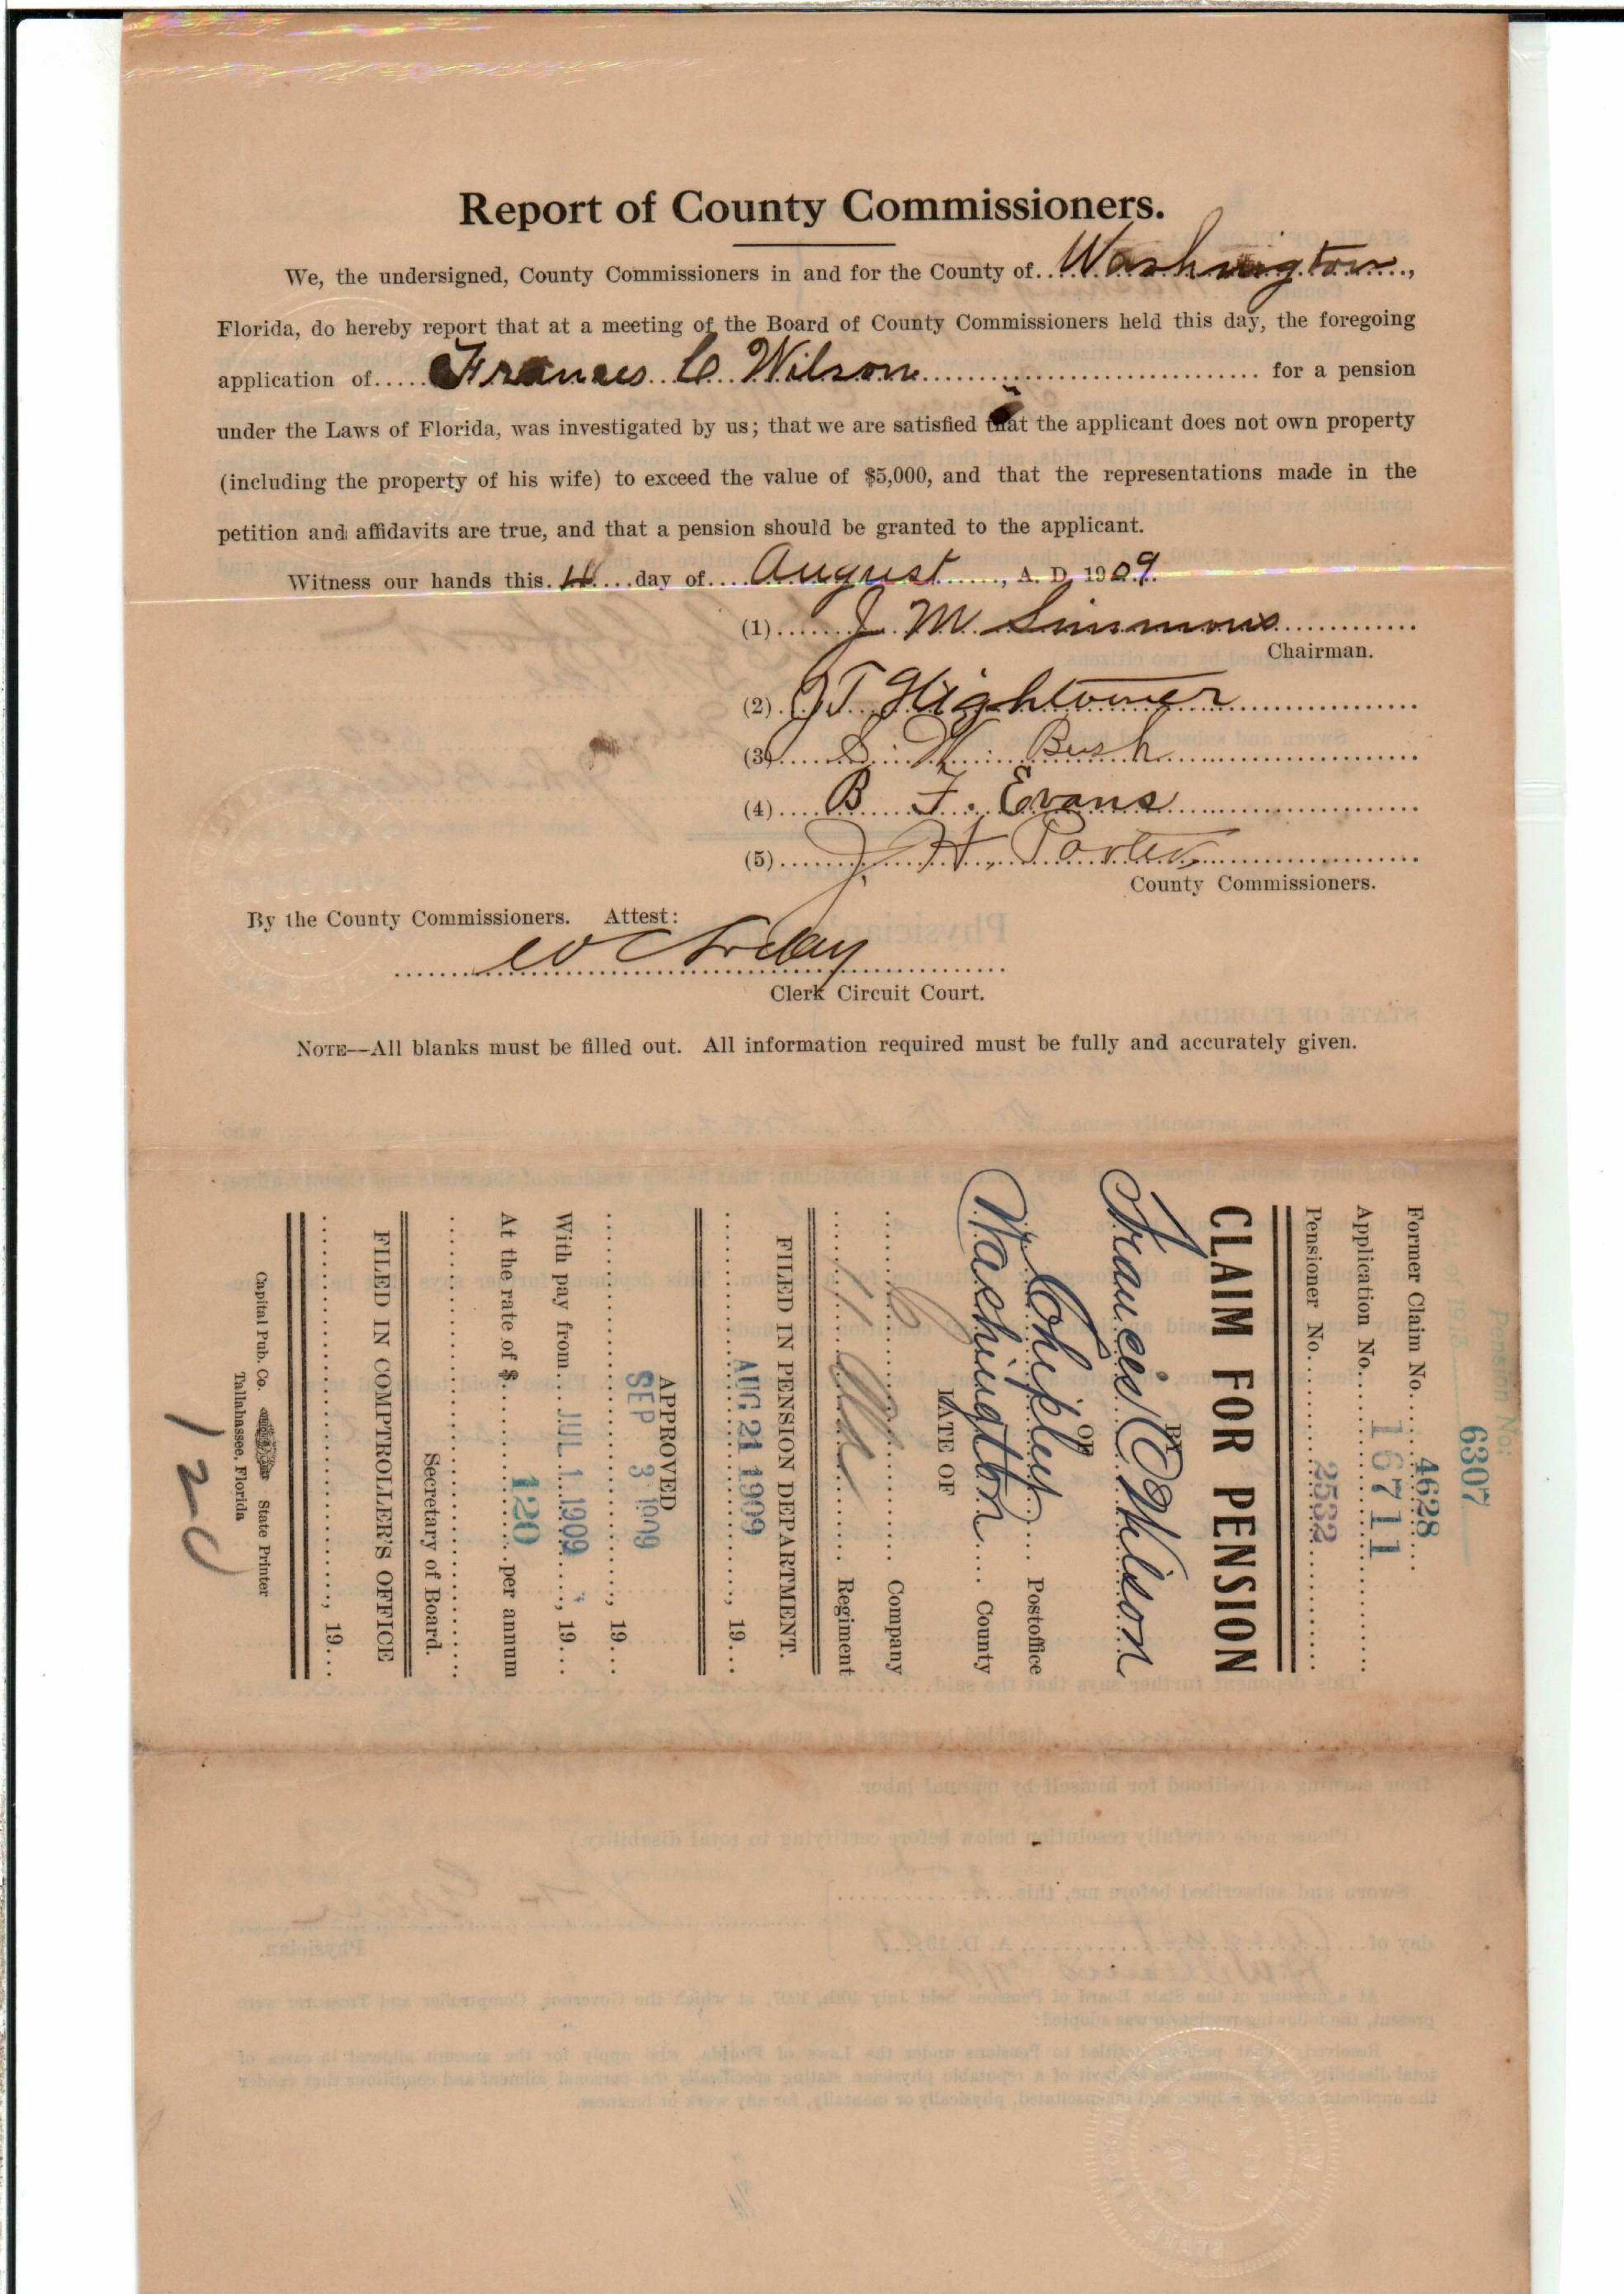 Report of County Commissioners.
We, the undersigned, County Commissioners in and for the County of Washington,
Florida, do hereby report that at a meeting of the Board of County Commissioners held this day, the foregoing
application of Frances C Wilson for a pension
under the Laws of Florida, was investigated by us; that we are satisfied that the applicant does not own property
(including the property of his wife) to exceed the value of $5,000, and that the representations made in the
petition and affidavits are true, and that a pension should be granted to the applicant.
Witness our hands this day of August, A. D. 1909.
(1) J. M. Simmons
Chairman.
(2) J T Hightower
(3) S. W. Bush
(4) B. F. Evans
(5) J. H. Porter
County Commissioners.
By the County Commissioners. Attest:
W C
Clerk Circuit Court.
NOTE—All blanks must be filled out. All information required must be fully and accurately given.
Pension No.
6307
Former Claim No. 4628
Application No. 16711
Pensioner No. 2532
CLAIM FOR PENSION
BY
Frances C Wilson
OF
Chipley Postoffice
Washington County
LATE OF
C Company
11 Regiment
FILED IN PENSION DEPARTMENT.
AUG 21 1909, 19
APPROVED
SEP 3 1909
, 19
With pay from JUL 1 1909, 19
At the rate of $ 120 per annum
Secretary of Board.
FILED IN COMPTROLLER'S OFFICE
, 19
Capital Pub. Co. State Printer
Tallahassee, Florida
120